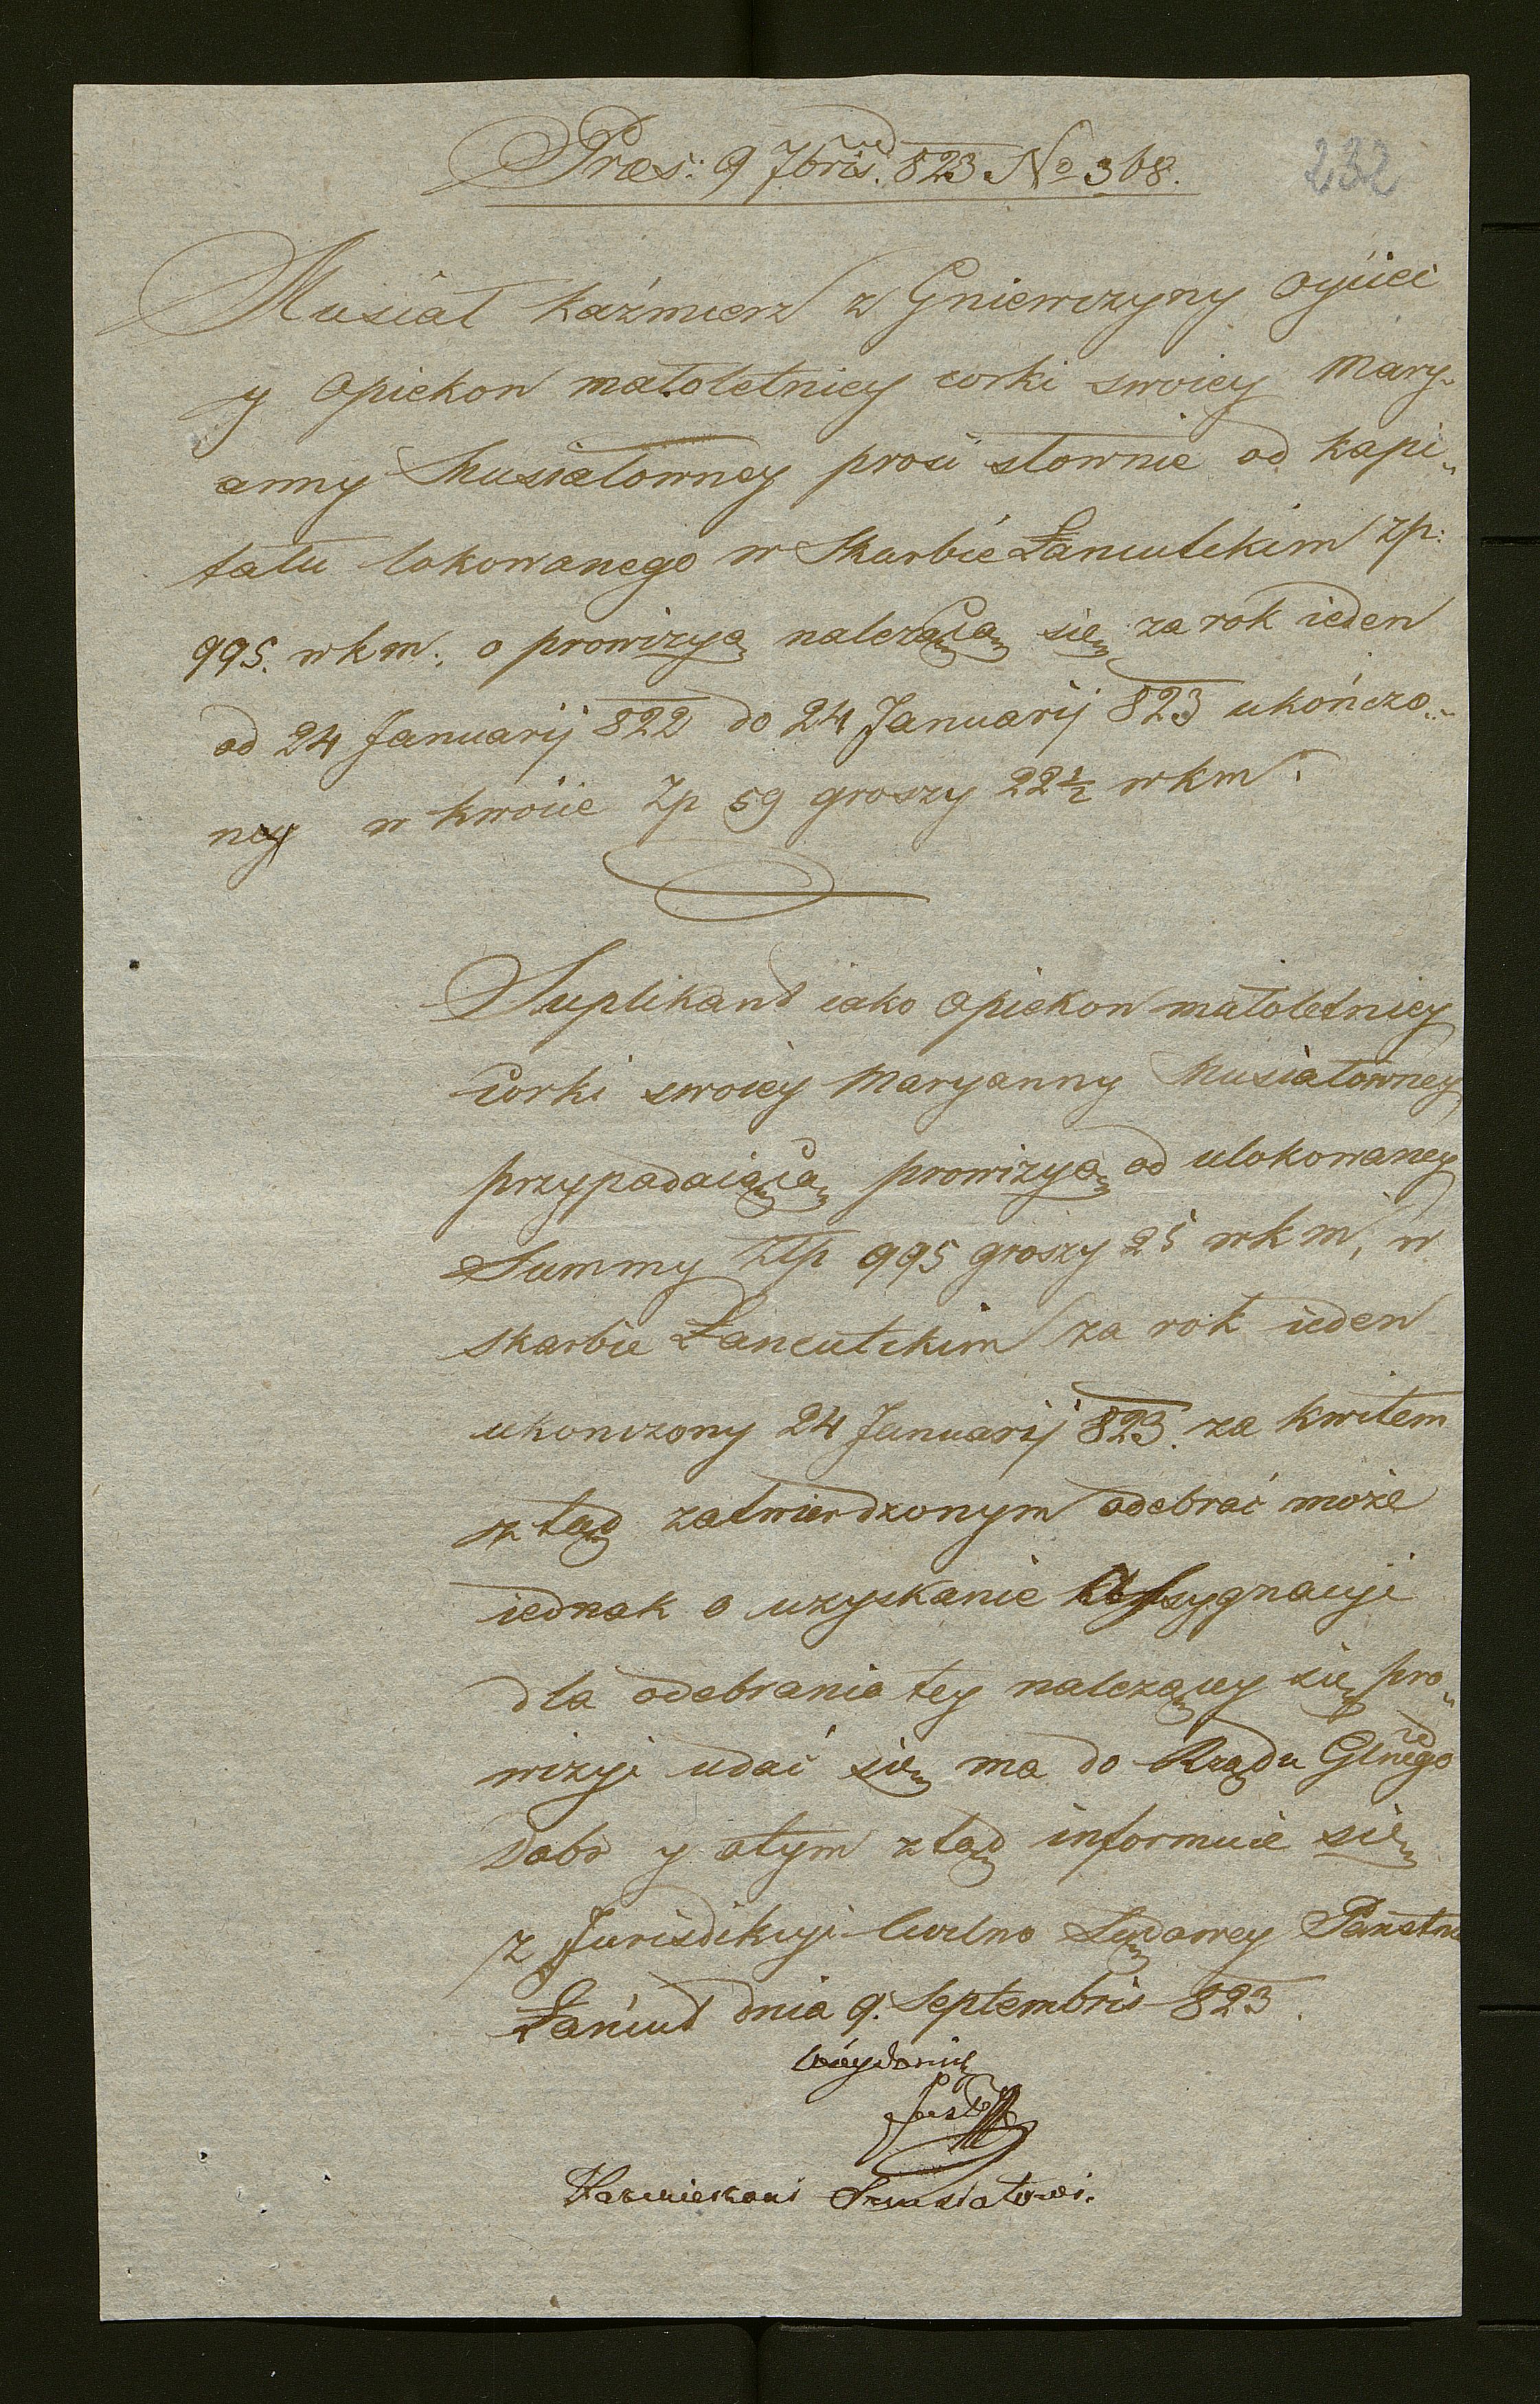 Præs: 9 7bris. 823 No 368.
232
Musiał Kaźmierz z Gniewczyny Oyciec
y Opiekon małoletniey corki swoiey Mary-
anny Musiałowney prosi słownie od kapi-
tału lokowanego w Skarbie Łancutckim Zp:
995. wkm., o prowizyą należącą się za rok ieden
od 24 Januarij 822 do 24 Januarij 823 ukończo-
ney w kwocie Zp 59 groszy 22½ wkm.
Suplikant iako Opiekon małoletniey
corki swoiey Maryanny Musiałowney
przypadaiącą prowizyą od ulokowaney
Summy Złp 995 groszy 25 wkm, w
skarbie Łancutckim za rok ieden
ukonczony 24 Januarij 823. za kwitem
ztąd zatwierdzonym odebrać może
iednak o uzyskanie Assygnacyi
dla odebrania tey należącey się pro-
wizyi udać się ma do Rządu Glnego
Dobr y otym ztąd informuie się
z Jurisdikcyi Cwilno Sądowey Państwa
Łańcut dnia 9. Septembris 823.
Kazmierzowi Musiałowi.